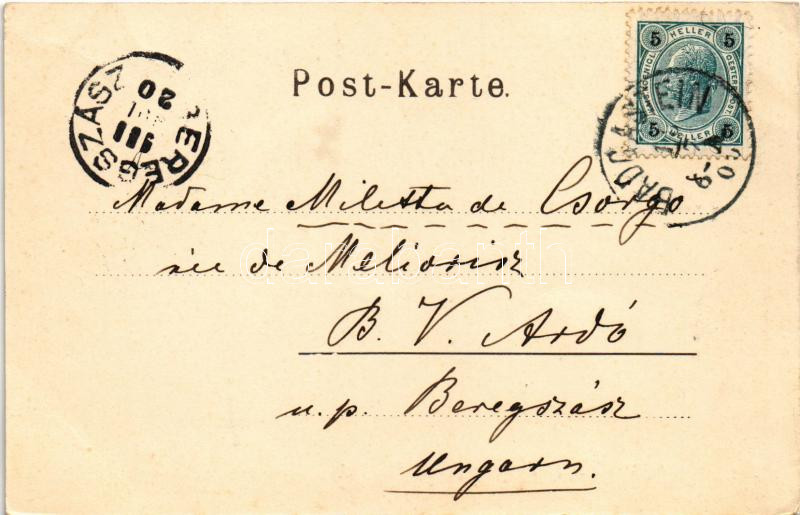 Post-Karte.
5 HELLER 5
5 HELLER 5
BADGASTEIN
BEREGSZÁSZ
20
Madame Miletta de Csorgo
née de Meliorisz
B. V. Ardó
u. p. Beregszász
Ungarn.
darabanth